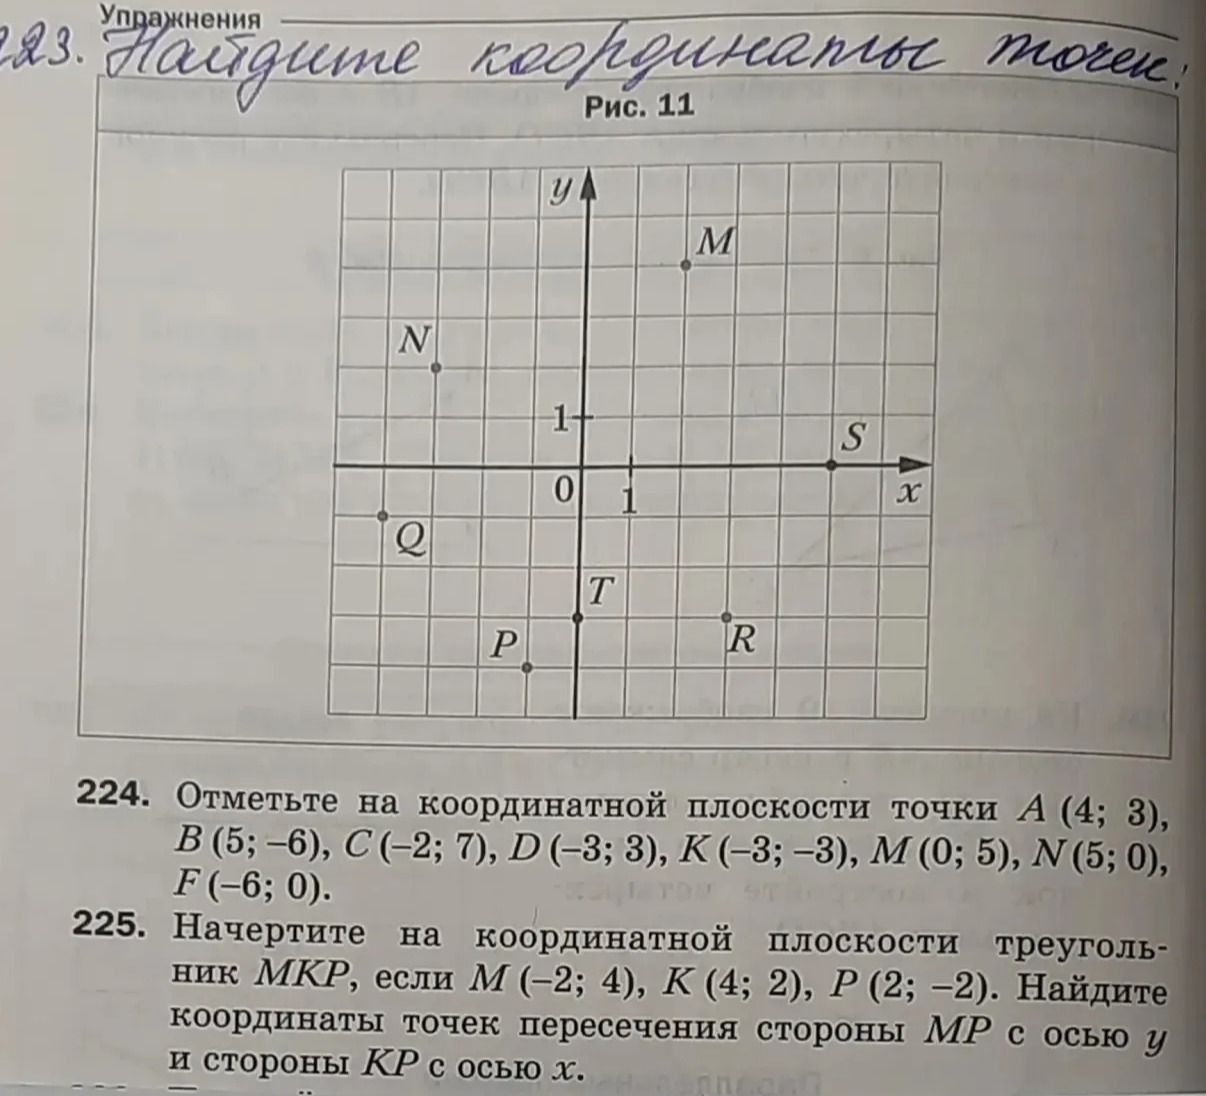 Упражнения
223. Найдите координаты точек:
Рис. 11
y
M
N
1
S
0
1
x
Q
T
P
R
224. Отметьте на координатной плоскости точки A (4; 3),
B (5; –6), C (–2; 7), D (–3; 3), K (–3; –3), M (0; 5), N (5; 0),
F (–6; 0).
225. Начертите на координатной плоскости треуголь-
ник MKP, если M (–2; 4), K (4; 2), P (2; –2). Найдите
координаты точек пересечения стороны MP с осью y
и стороны KP с осью x.